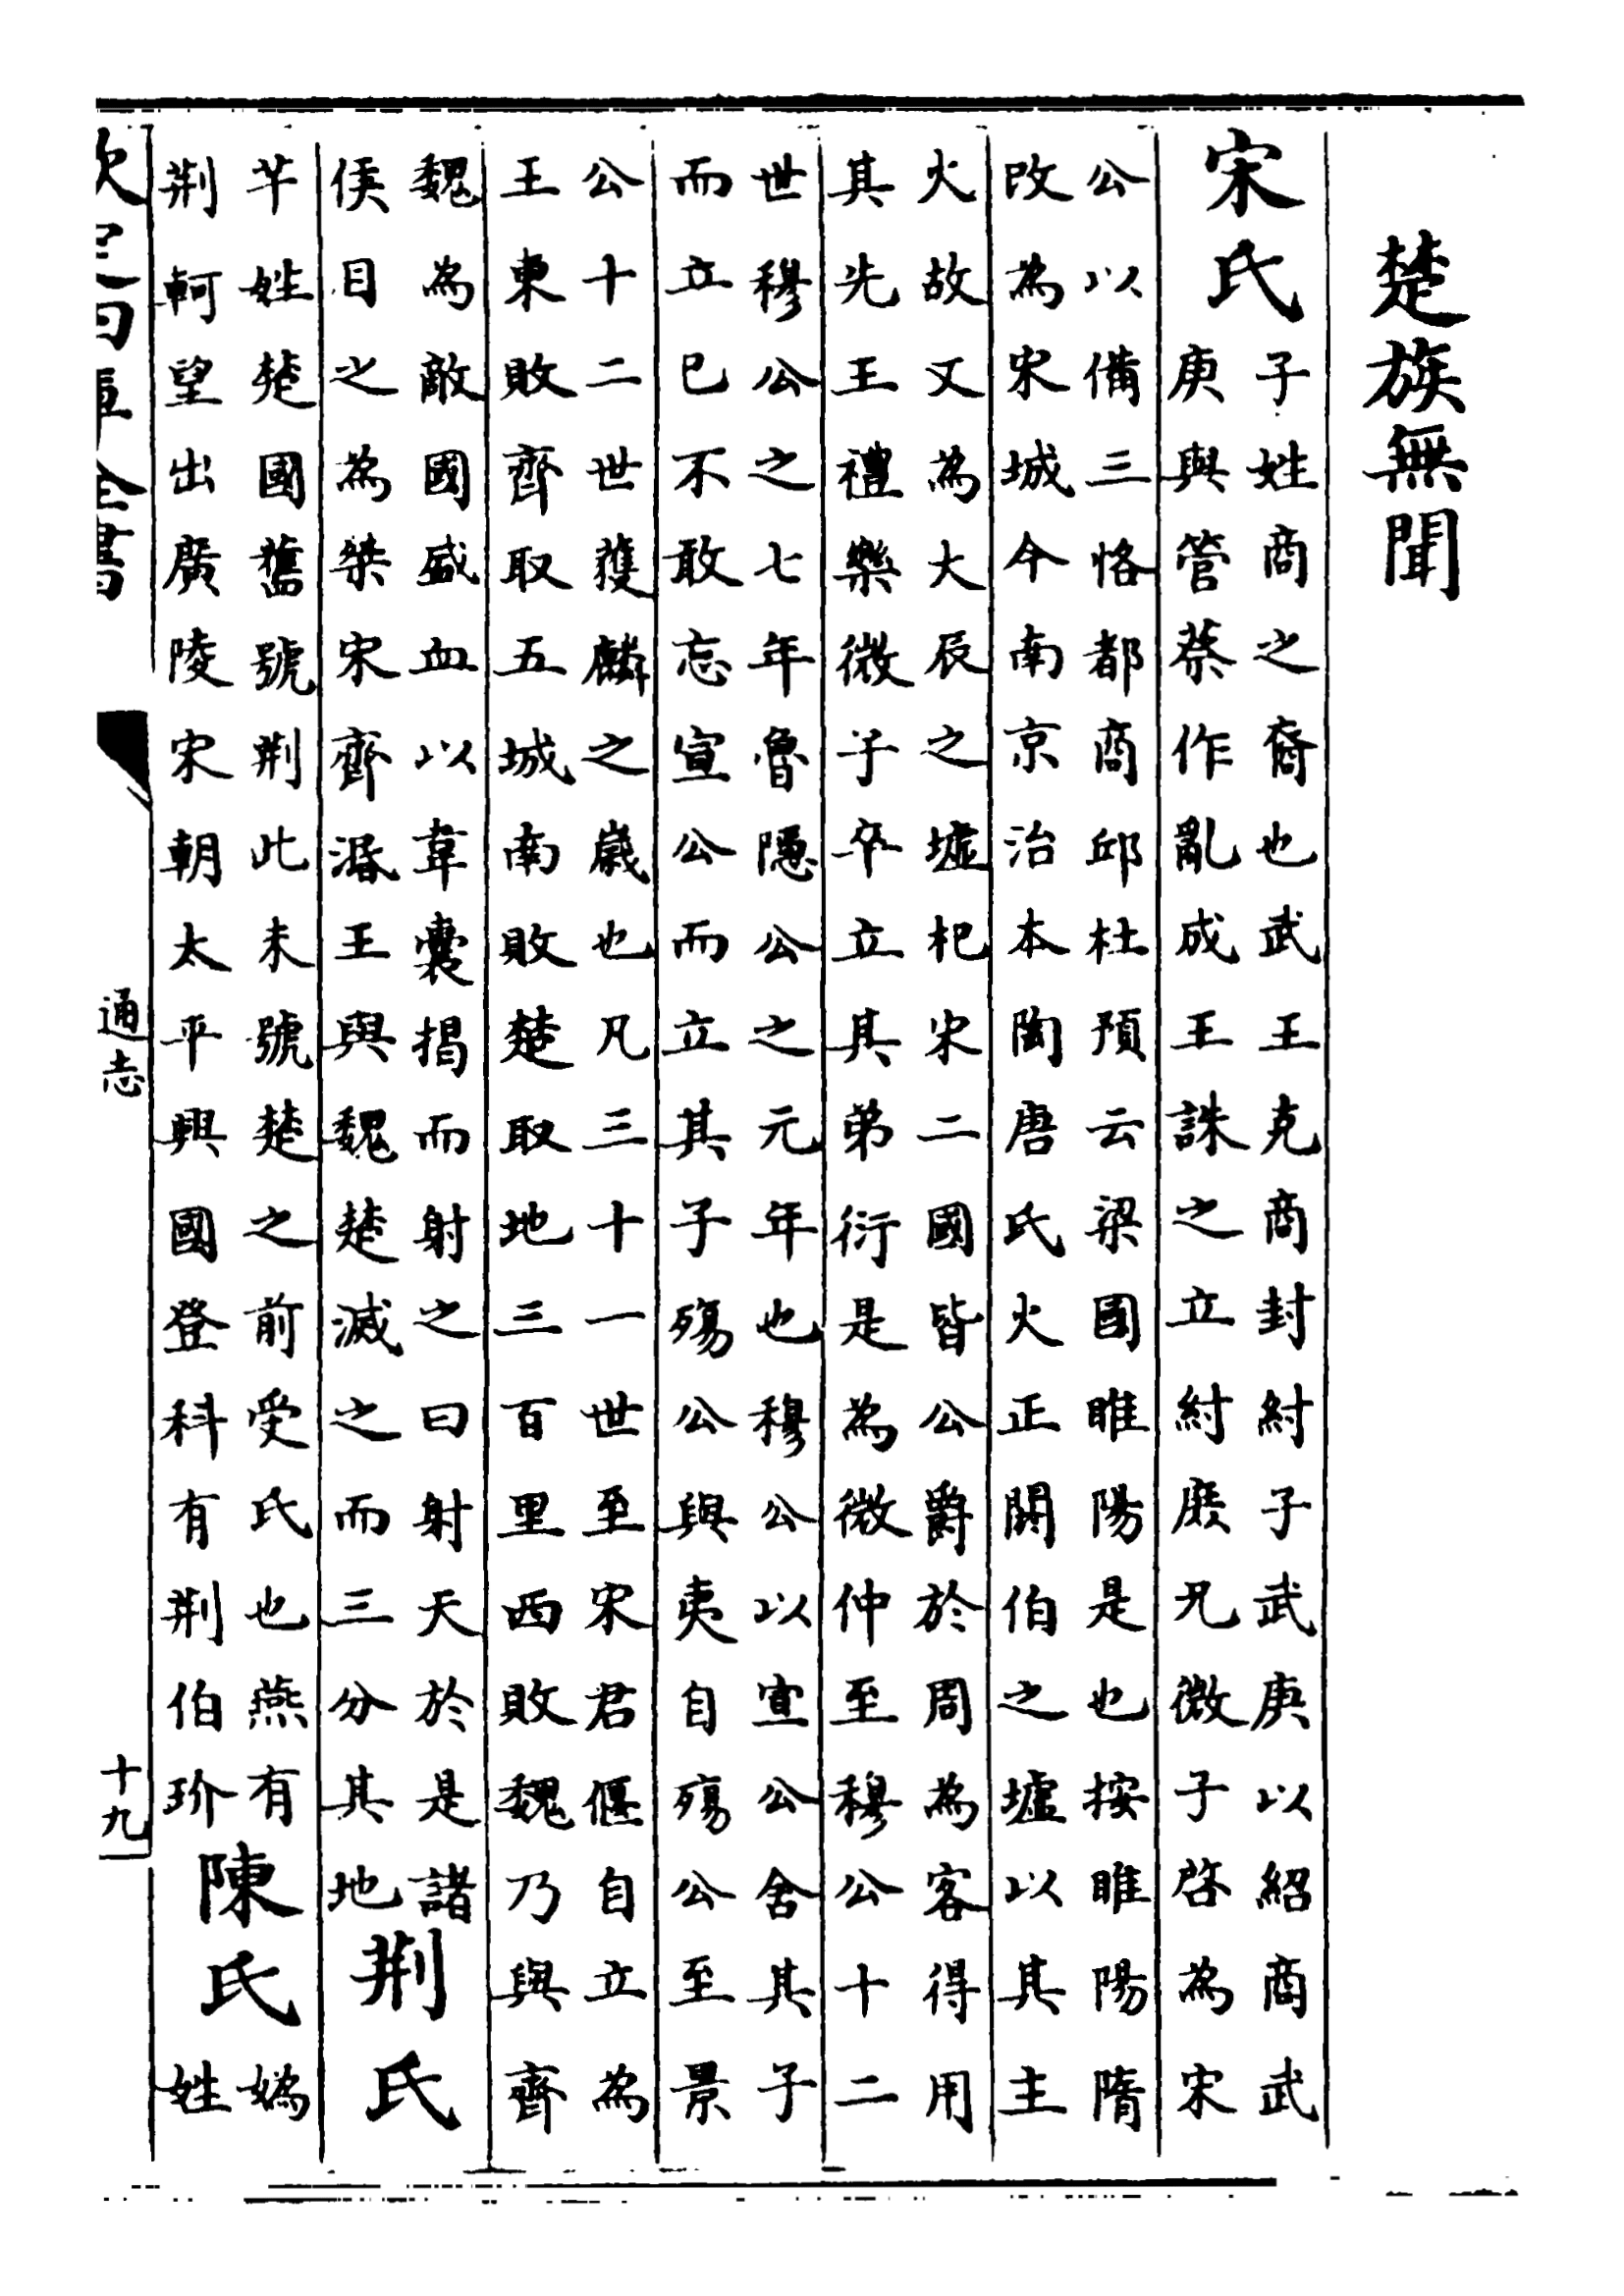 楚族無聞
宋氏
子姓商之裔也武王克商封紂子武庚以紹商武
庚與管蔡作亂成王誅之立紂庶兄微子啓為宋
公以備三恪都商邱杜預云梁國睢陽是也按睢陽隋
改為宋城今南京治本陶唐氏火正閼伯之墟以其主
火故又為大辰之墟杞宋二國皆公爵於周為客得用
其先王禮樂微子卒立其弟衍是為微仲至穆公十二
世穆公之七年魯隱公之元年也穆公以宣公舍其子
而立已不敢忘宣公而立其子殤公與夷自殤公至景
公十二世獲麟之嵗也凡三十一世至宋君偃自立為
王東敗齊取五城南敗楚取地三百里西敗魏乃與齊
魏為敵國盛血以韋囊掲而射之曰射天於是諸
侯目之為桀宋齊湣王與魏楚滅之而三分其地
荆氏
芊姓楚國舊號荆此未號楚之前受氏也燕有
荆軻望出廣陵宋朝太平興國登科有荆伯玠
陳氏
媯
姓
欽定四庫全書
通志
十九